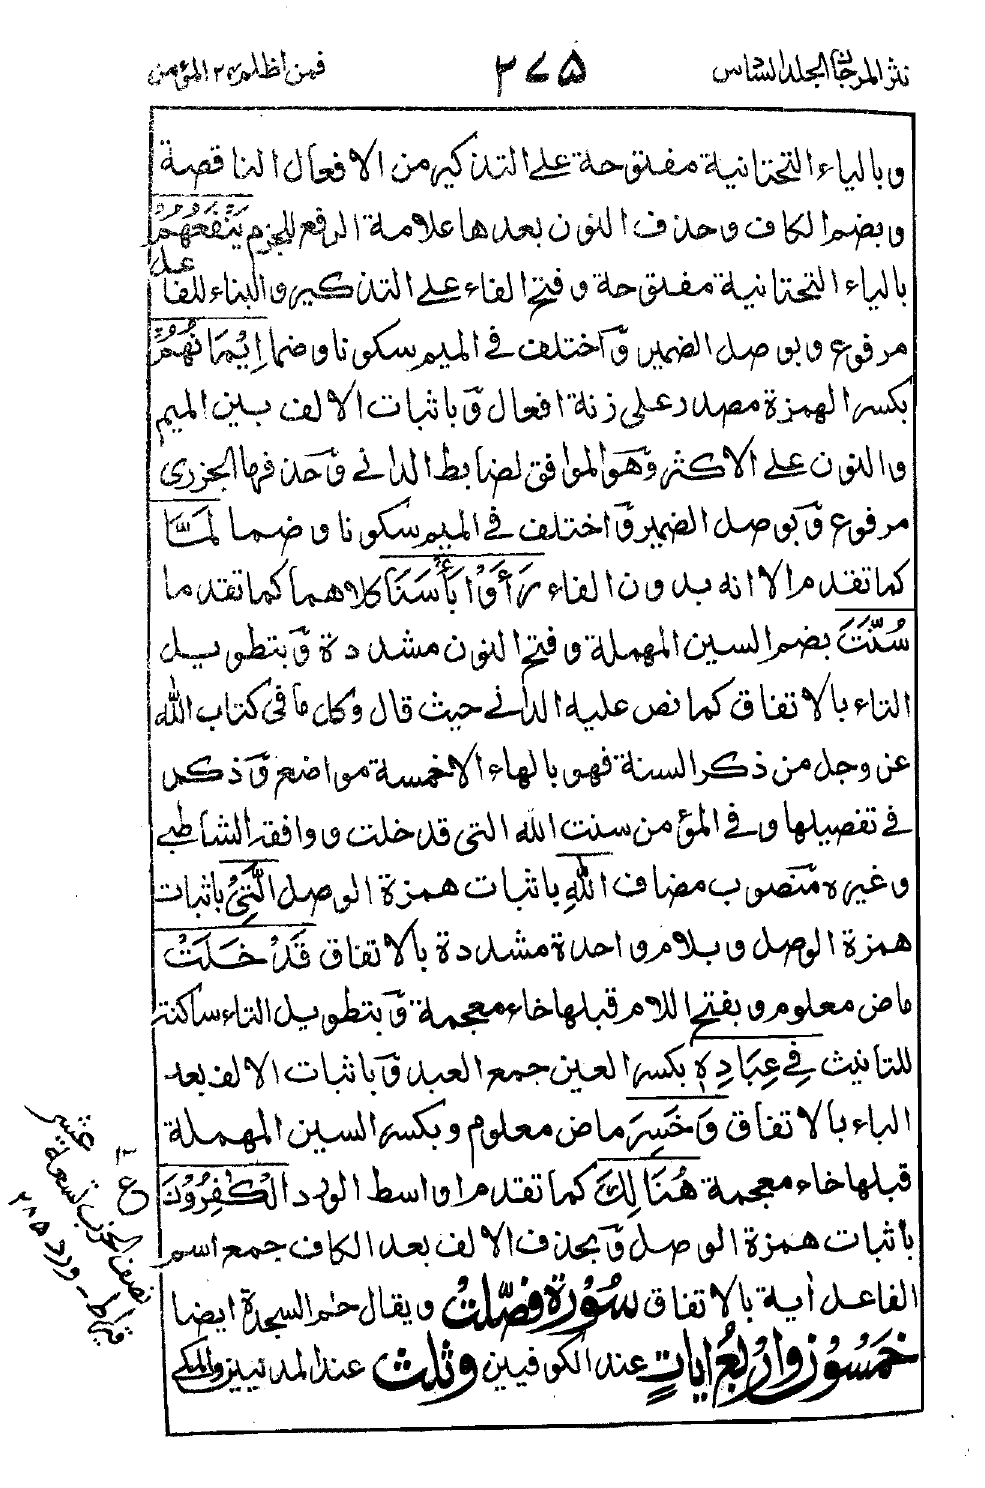 نثر المرجان الجلد السادس
٢٧٥
فمن اظلم ٢٤ المؤمن
وبالياء التحتانية مفتوحة على التذكير من الافعال الناقصة
وبضم الكاف وحذف النون بعدها علامة الرفع للجزم يَنْفَعُهُمْ
بالياء التحتانية مفتوحة وفتح الفاء على التذكير والبناء للفاعل
مرفوع وبوصل الضمير وَاختلف في الميم سكونا وضما اِيْمَانُهُمْ
بكسر الهمزة مصدر على زنة افعال وَباثبات الالف بين الميم
والنون على الاكثر وَهو الموافق لضابط الداني وَحذفها الجزري
مرفوع وَبوصل الضمير وَاختلف في الميم سكونا وضما لَمَّا
كما تقدم الا انه بدون الفاء رَأَوْا بَأْسَنَا كلاهما كما تقدم ما
سُنَّتَ بضم السين المهملة وفتح النون مشددة وَبتطويل
التاء بالاتفاق كما نص عليه الداني حيث قال وكل ما في كتاب الله
عز وجل من ذكر السنة فهو بالهاء الا خمسة مواضع وَذكر
في تفصيلها وفي المؤمن سنت الله التي قد خلت ووافقه الشاطبي
وغيره مَنصوب مضاف اللّٰهِ باثبات همزة الوصل الَّتِيْ باثبات
همزة الوصل وبلام واحدة مشددة بالاتفاق قَدْ خَلَتْ
ماض معلوم وبفتح اللام قبلها خاء معجمة وَبتطويل التاء ساكنة
للتانيث فِيْ عِبَادِهٖ بكسر العين جمع العبد وَباثبات الالف بعد
الباء بالاتفاق وَخَسِرَ ماض معلوم وبكسر السين المهملة
قبلها خاء معجمة هُنَالِكَ كما تقدم اواسط الورد الْكٰفِرُوْنَ
باثبات همزة الوصل وَبحذف الالف بعد الكاف جمع اسم
الفاعل اٰية بالاتفاق سُوْرَةُ فُصِّلَتْ ويقال حٰم السجدة ايضا
خَمْسُوْنَ وَاَرْبَعُ اٰيَاتٍ عند الكوفيين وَثلٰث عند المدنيين والمكي
ع
نصف الحزب التاسعة عشر
قراط - ورد ٢٨٥